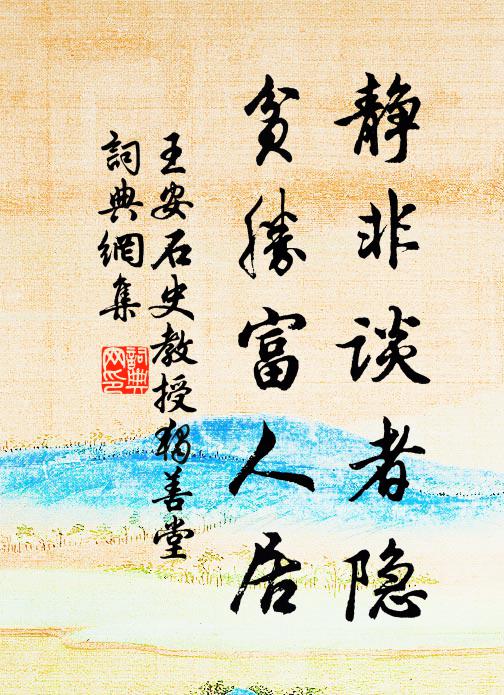 静非谈者隐
贫勝富人居
王安石史教授獨善堂
詞典網集
詞典网印